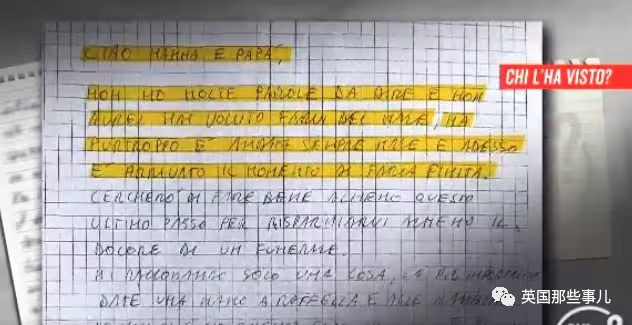 CIAO MAMMA E PAPÀ,
CHI L'HA VISTO?
NON HO MOLTE PAROLE DA DIRE E NON
AVREI MAI VOLUTO FARVI DEL MALE, MA
PURTROPPO È ANDATA SEMPRE MALE E ADESSO
È ARRIVATO IL MOMENTO DI FARLA FINITA.
CERCHERÒ DI FARE BENE ALMENO QUESTO
ULTIMO PASSO PER RISPARMIARVI ALMENO IL
DOLORE DI UN FUNERALE.
MI RACCOMANDO SOLO UNA COSA, LA PIÙ
DATE UNA MANO A RAFFAELLA E ALLE
英国那些事儿